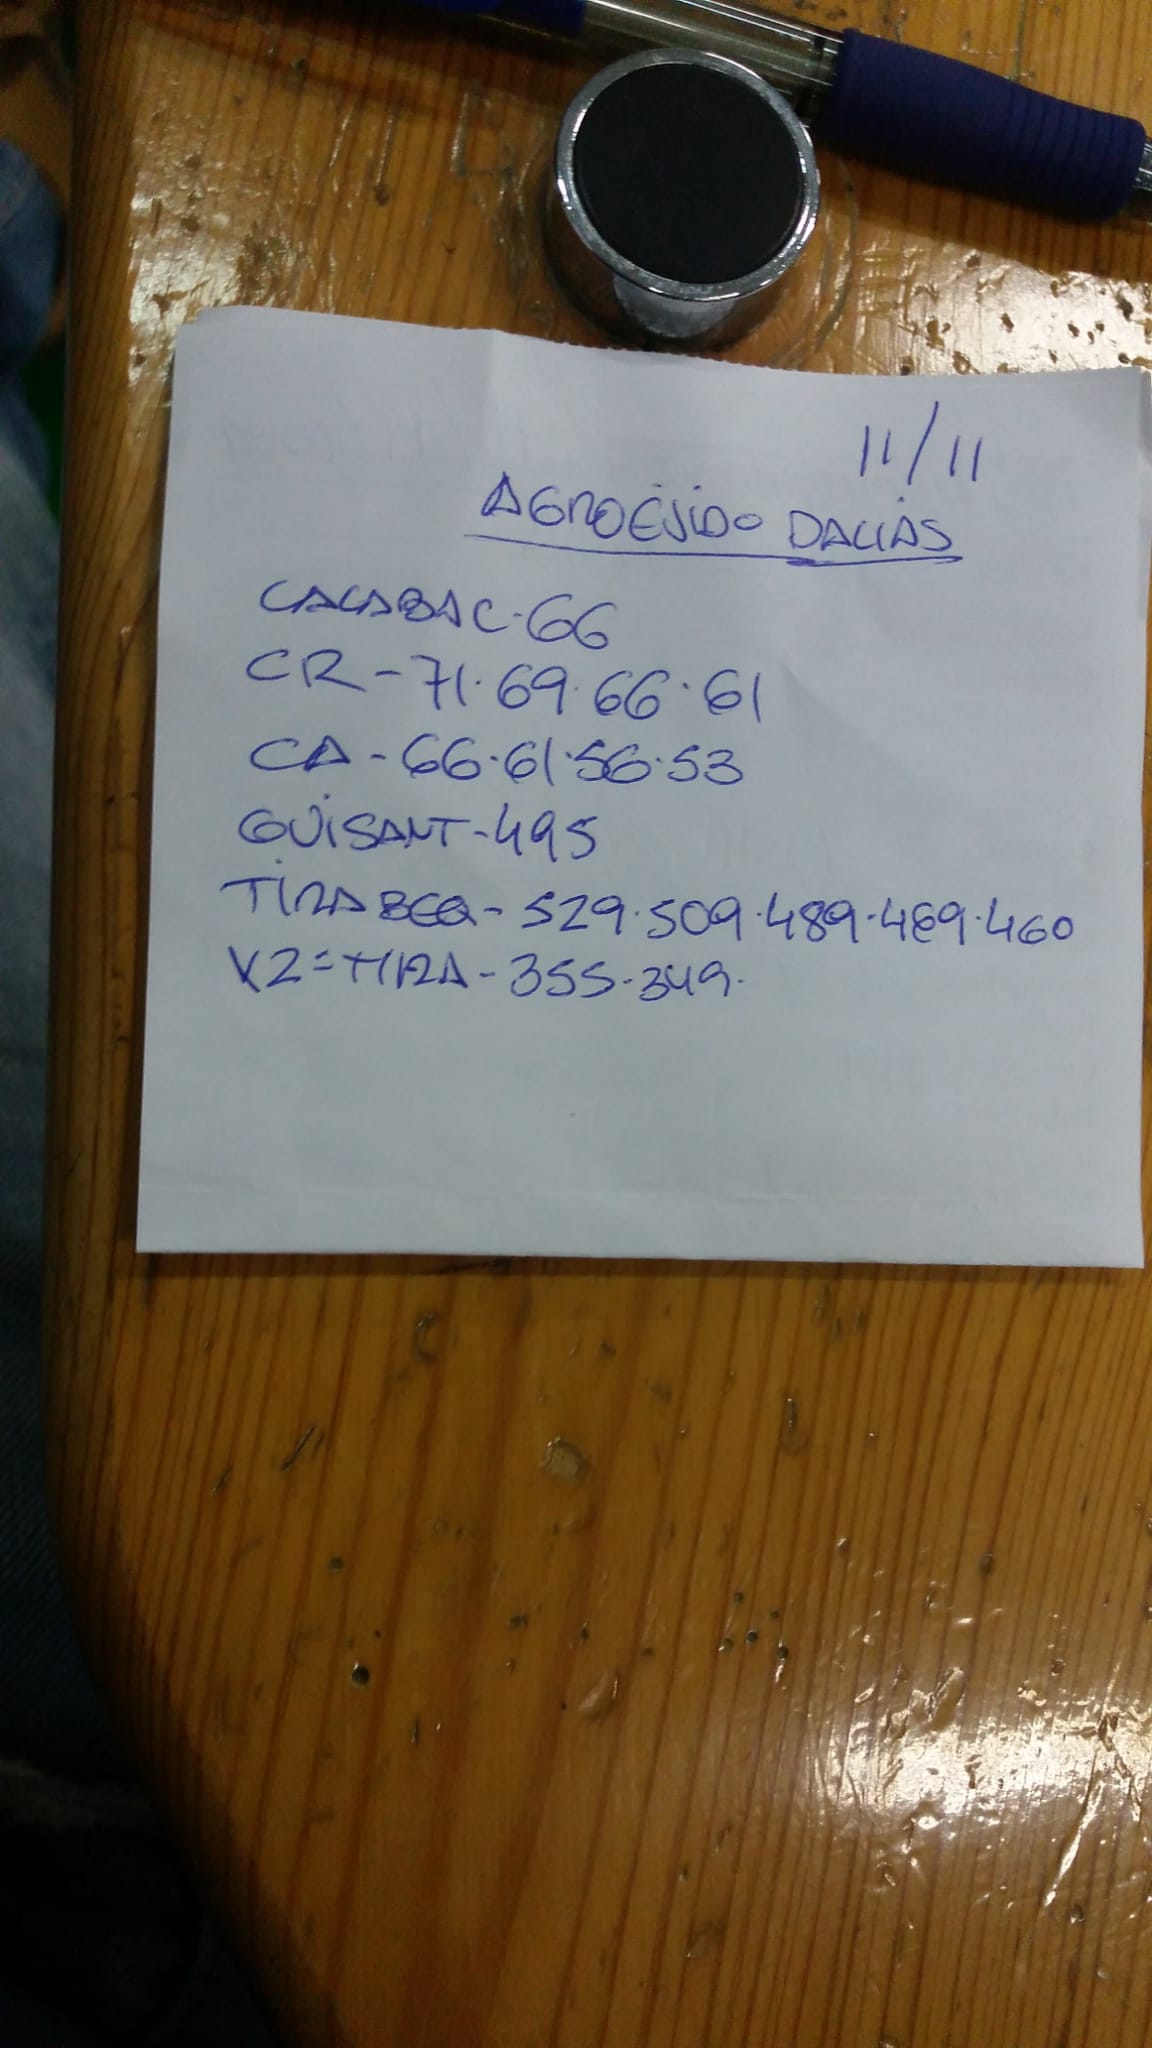 11/11
AGROEJIDO DALIAS
CALABAC-66
CR-71.69.66.61
CA-66.61.56.53
GUISANT-495
TIRABEQ-529.509.489.469.460
V2=TIRA-355.349.